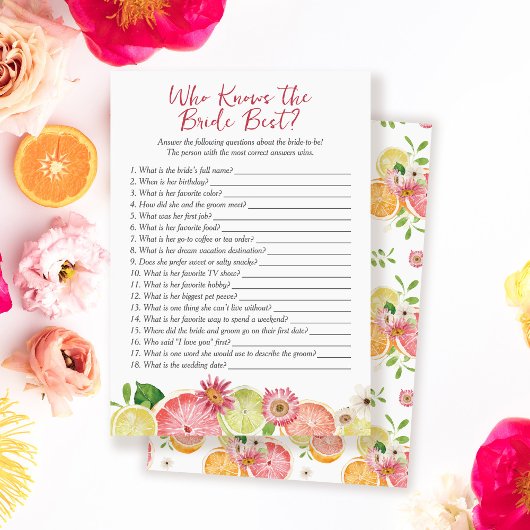 Who Knows the
Bride Best?
Answer the following questions about the bride-to-be!
The person with the most correct answers wins.
1. What is the bride's full name?
2. When is her birthday?
3. What is her favorite color?
4. How did she and the groom meet?
5. What was her first job?
6. What is her favorite food?
7. What is her go-to coffee or tea order?
8. What is her dream vacation destination?
9. Does she prefer sweet or salty snacks?
10. What is her favorite TV show?
11. What is her favorite hobby?
12. What is her biggest pet peeve?
13. What is one thing she can't live without?
14. What is her favorite way to spend a weekend?
15. Where did the bride and groom go on their first date?
16. Who said "I love you" first?
17. What is one word she would use to describe the groom?
18. What is the wedding date?